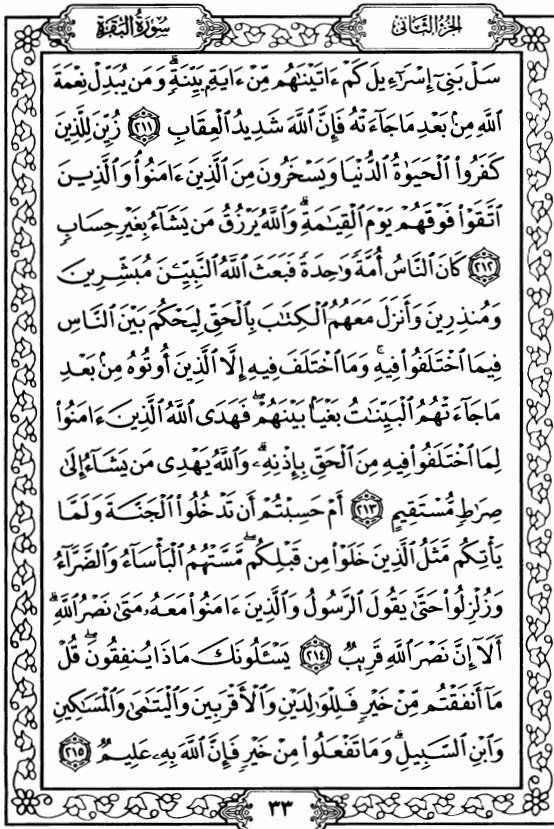 سُورَةُ البَقَرَةِ
الجُزْءُ الثَّانِي
سَلْ بَنِىٓ إِسْرَٰٓءِيلَ كَمْ ءَاتَيْنَٰهُم مِّنْ ءَايَةٍۭ بَيِّنَةٍۗ وَمَن يُبَدِّلْ نِعْمَةَ
ٱللَّهِ مِنۢ بَعْدِ مَا جَآءَتْهُ فَإِنَّ ٱللَّهَ شَدِيدُ ٱلْعِقَابِ ٢١١ زُيِّنَ لِلَّذِينَ
كَفَرُوا۟ ٱلْحَيَوٰةُ ٱلدُّنْيَا وَيَسْخَرُونَ مِنَ ٱلَّذِينَ ءَامَنُوا۟ۘ وَٱلَّذِينَ
ٱتَّقَوْا۟ فَوْقَهُمْ يَوْمَ ٱلْقِيَٰمَةِۗ وَٱللَّهُ يَرْزُقُ مَن يَشَآءُ بِغَيْرِ حِسَابٍ
٢١٢ كَانَ ٱلنَّاسُ أُمَّةً وَٰحِدَةً فَبَعَثَ ٱللَّهُ ٱلنَّبِيِّۦنَ مُبَشِّرِينَ
وَمُنذِرِينَ وَأَنزَلَ مَعَهُمُ ٱلْكِتَٰبَ بِٱلْحَقِّ لِيَحْكُمَ بَيْنَ ٱلنَّاسِ
فِيمَا ٱخْتَلَفُوا۟ فِيهِۚ وَمَا ٱخْتَلَفَ فِيهِ إِلَّا ٱلَّذِينَ أُوتُوهُ مِنۢ بَعْدِ
مَا جَآءَتْهُمُ ٱلْبَيِّنَٰتُ بَغْيًۢا بَيْنَهُمْۖ فَهَدَى ٱللَّهُ ٱلَّذِينَ ءَامَنُوا۟
لِمَا ٱخْتَلَفُوا۟ فِيهِ مِنَ ٱلْحَقِّ بِإِذْنِهِۦۗ وَٱللَّهُ يَهْدِى مَن يَشَآءُ إِلَىٰ
صِرَٰطٍ مُّسْتَقِيمٍ ٢١٣ أَمْ حَسِبْتُمْ أَن تَدْخُلُوا۟ ٱلْجَنَّةَ وَلَمَّا
يَأْتِكُم مَّثَلُ ٱلَّذِينَ خَلَوْا۟ مِن قَبْلِكُمۖ مَّسَّتْهُمُ ٱلْبَأْسَآءُ وَٱلضَّرَّآءُ
وَزُلْزِلُوا۟ حَتَّىٰ يَقُولَ ٱلرَّسُولُ وَٱلَّذِينَ ءَامَنُوا۟ مَعَهُۥ مَتَىٰ نَصْرُ ٱللَّهِۗ
أَلَآ إِنَّ نَصْرَ ٱللَّهِ قَرِيبٌ ٢١٤ يَسْـَٔلُونَكَ مَاذَا يُنفِقُونَۖ قُلْ
مَآ أَنفَقْتُم مِّنْ خَيْرٍ فَلِلْوَٰلِدَيْنِ وَٱلْأَقْرَبِينَ وَٱلْيَتَٰمَىٰ وَٱلْمَسَٰكِينِ
وَٱبْنِ ٱلسَّبِيلِۗ وَمَا تَفْعَلُوا۟ مِنْ خَيْرٍ فَإِنَّ ٱللَّهَ بِهِۦ عَلِيمٌ ٢١٥
٣٣